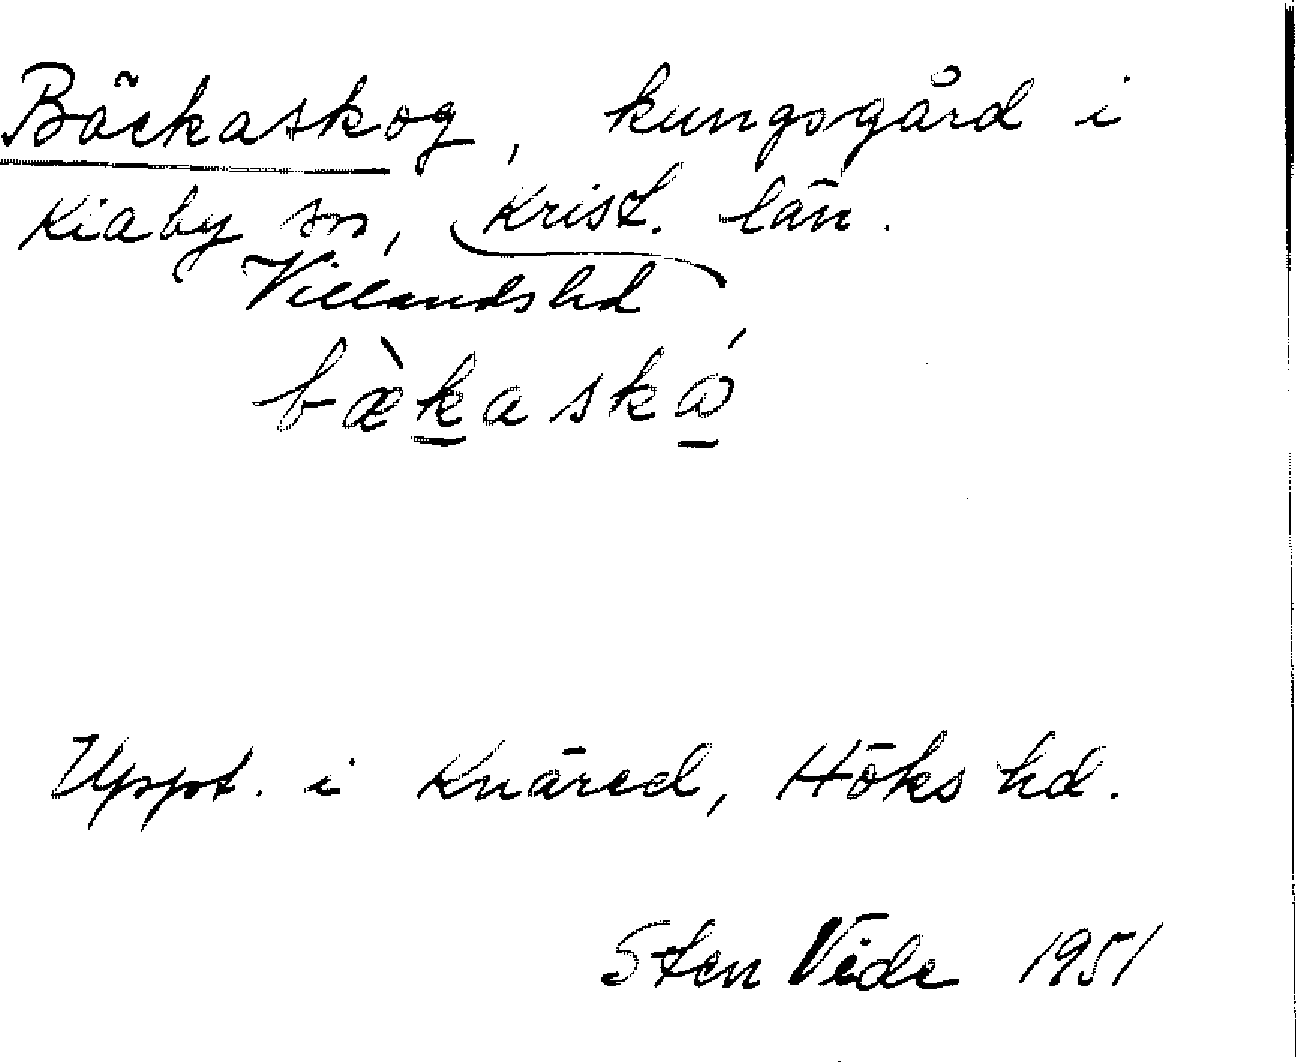 Bäckaskog, kungsgård i
Kiaby sn, Krist. län.
Villands hd
bæ̀kaskó
Uppt. i Knäred, Höks hd.
Sten Vide 1951